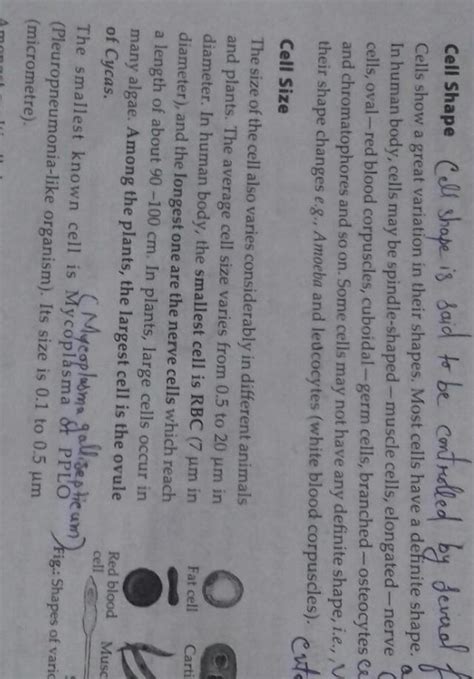 Cell Shape Cell shape is said to be controlled by several
Cells show a great variation in their shapes. Most cells have a definite shape.
In human body, cells may be spindle-shaped—muscle cells, elongated—nerve
cells, oval—red blood corpuscles, cuboidal—germ cells, branched—osteocytes
and chromatophores and so on. Some cells may not have any definite shape, i.e.,
their shape changes e.g., Amoeba and leucocytes (white blood corpuscles).
Cell Size
The size of the cell also varies considerably in different animals
and plants. The average cell size varies from 0.5 to 20 μm in
diameter. In human body, the smallest cell is RBC (7 μm in
diameter), and the longest one are the nerve cells which reach
a length of about 90-100 cm. In plants, large cells occur in
many algae. Among the plants, the largest cell is the ovule
of Cycas.
(Mycoplasma gallisepticum)
The smallest known cell is Mycoplasma or PPLO
(Pleuropneumonia-like organism). Its size is 0.1 to 0.5 μm
(micrometre).
Fat cell
Red blood
cell
Fig.: Shapes of